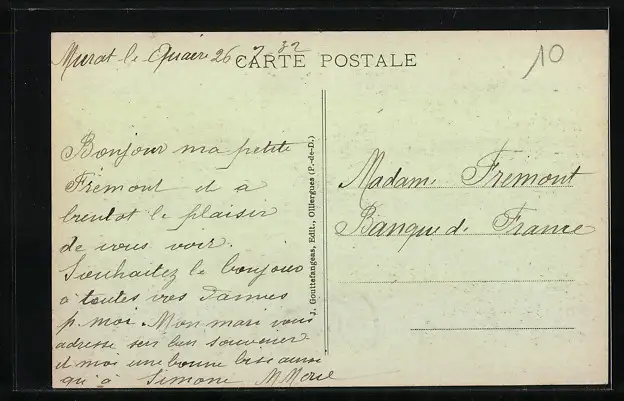 Murat le Quaire 26 7 32
CARTE POSTALE
10
Bonjour ma petite
Frémont et à
bientot le plaisir
de vous voir.
Souhaitez le bonjour
à toutes vos Dames
p moi. Mon mari vous
adresse son bon souvenir
et moi une bonne bise ainsi
qu'à Simone
J. Gouttefangeas, Edit., Olliergues (P.-de-D.)
Madame Frémont
Banque de France